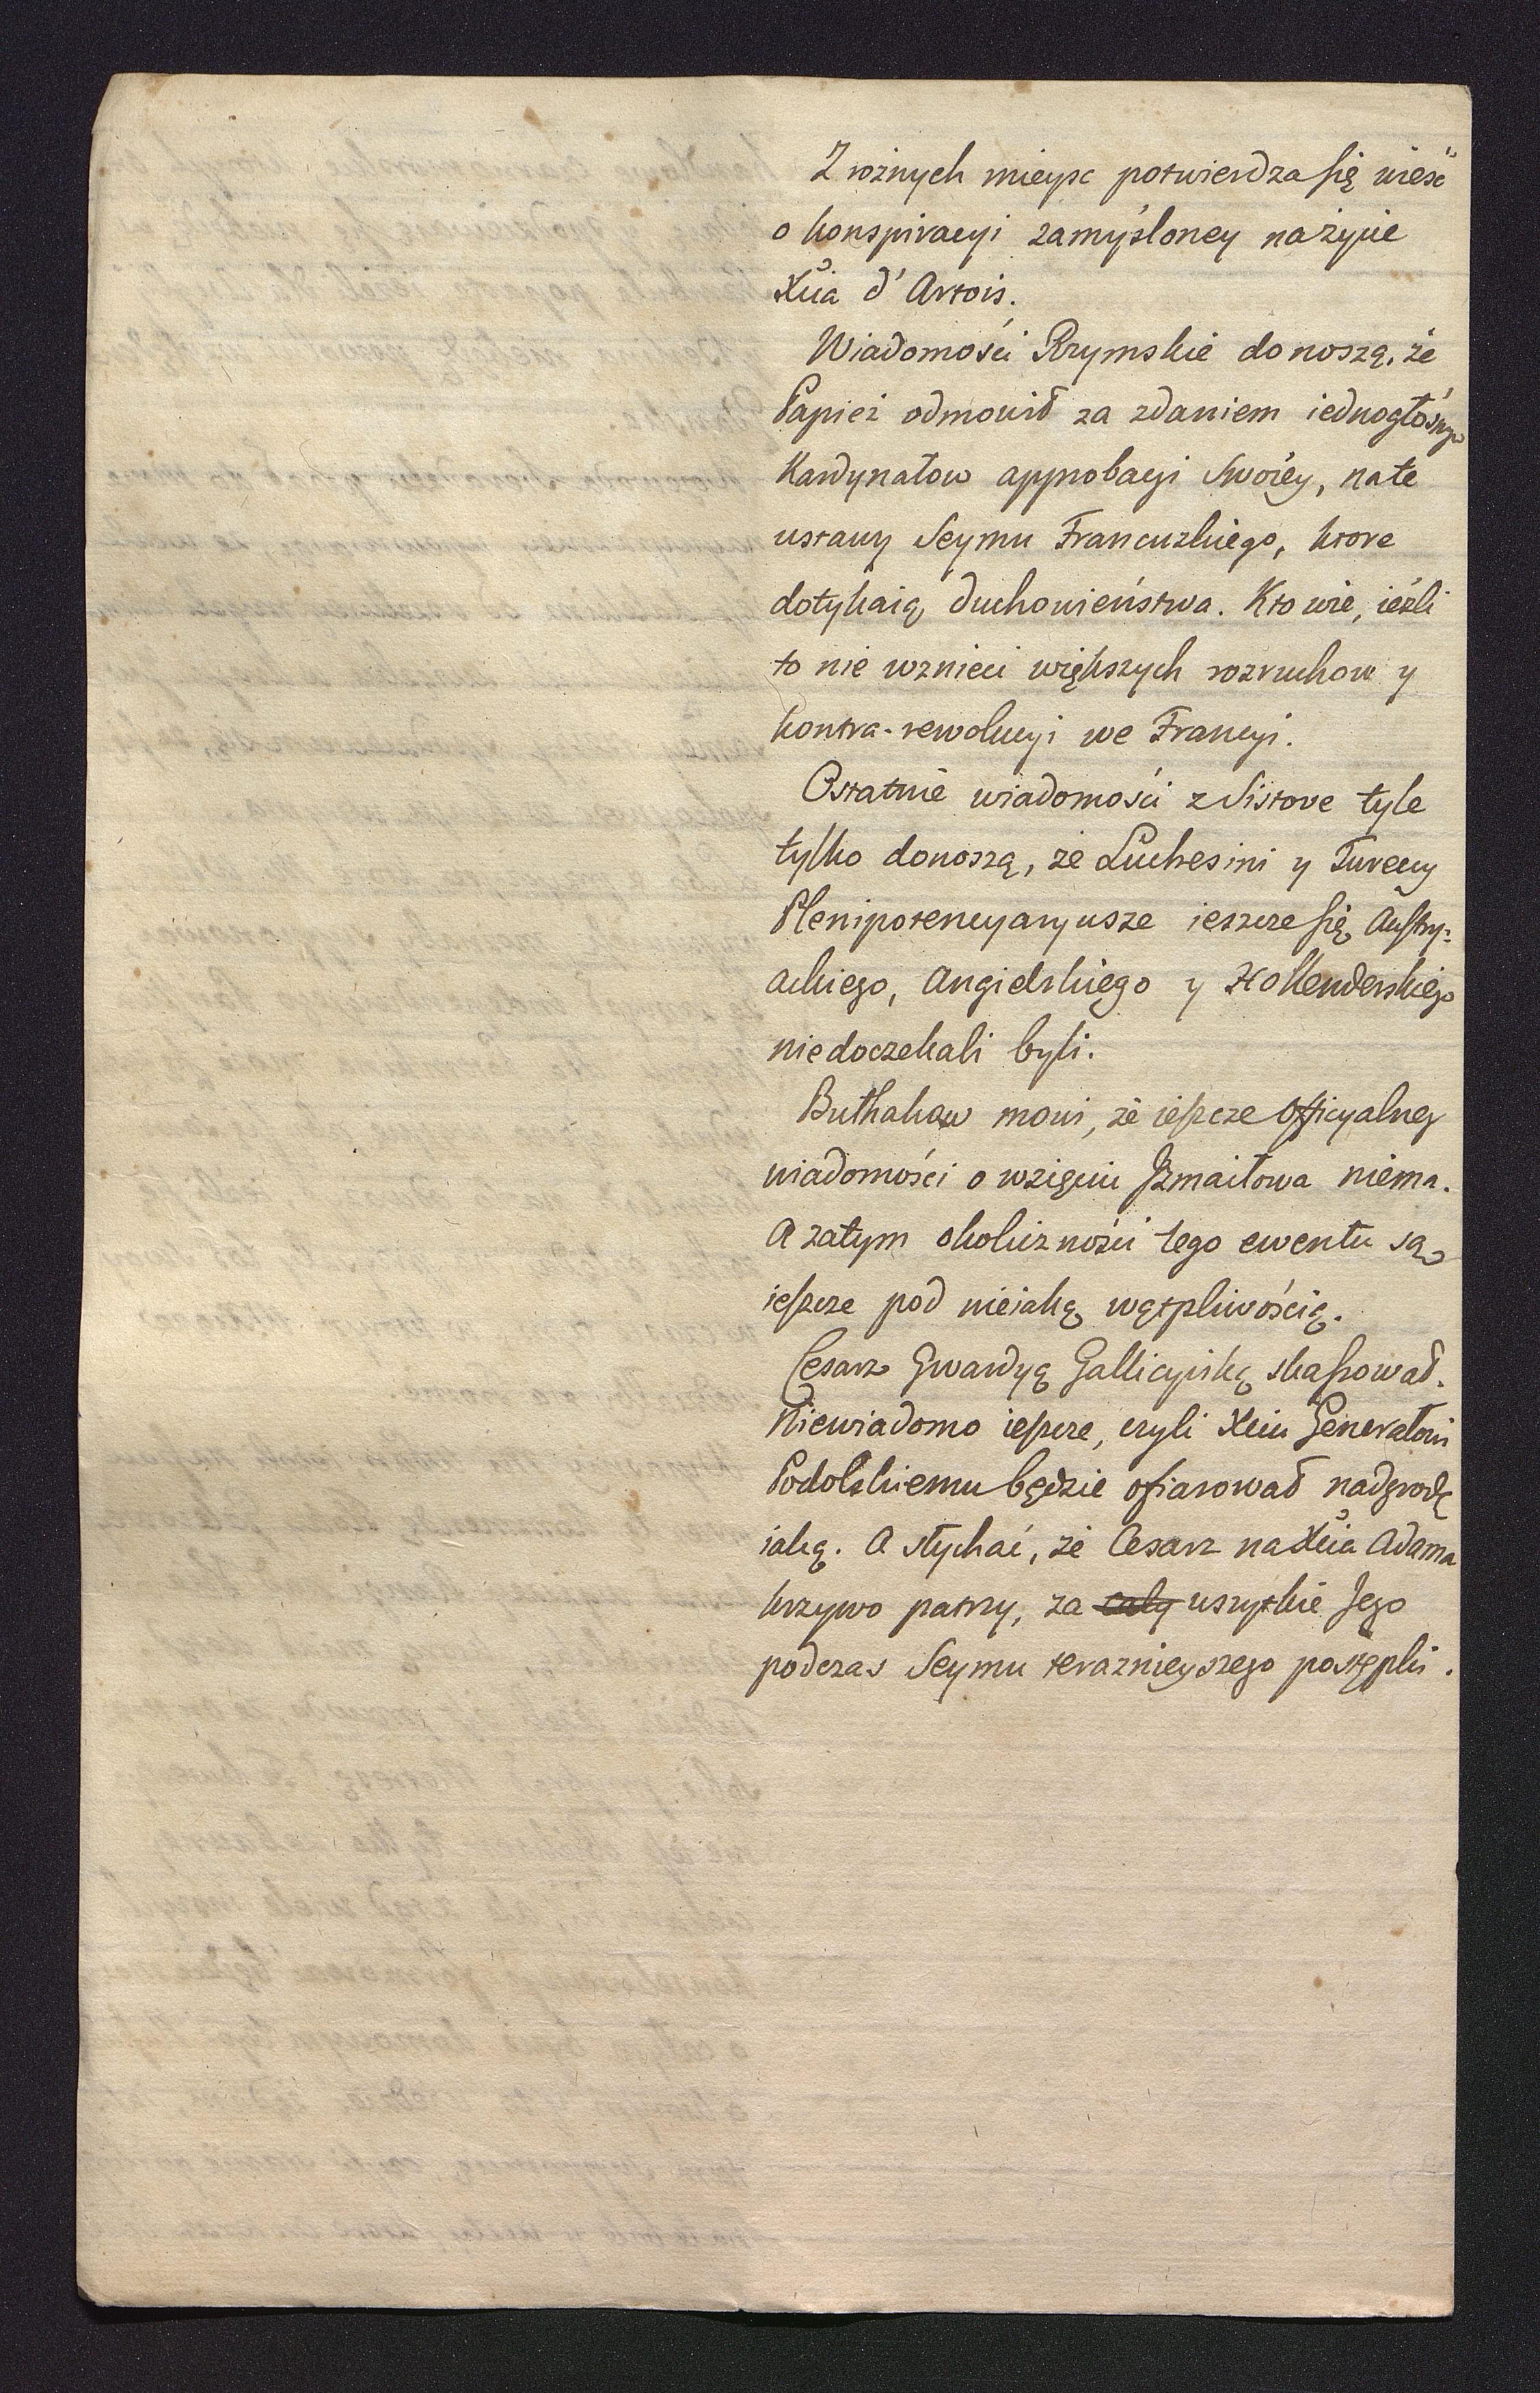 Z rożnych mieysc potwierdza się wieść
o konspiracyi zamyśloney na życie
Xcia d'Artois.
Wiadomości Rzymskie donoszą, że
Papież odmowił za zdaniem iednogłośnym
Kardynałow approbacyi Swoiey, na te
ustawy Seymu Francuzkiego, ktore
dotykaią duchowieństwa. Kto wie, ieżli
to nie wznieci większych rozruchow y
kontra-rewolucyi we Francyi.
Ostatnie wiadomości z Sistove tyle
tylko donoszą, że Luchesini y Tureccy
Plenipotencyaryusze ieszcze się Austry=
ackiego, Angielskiego y Hollenderskiego
niedoczekali byli.
Buthakow mowi, że ieszcze Officyalney
wiadomości o wzięciu Izmaiłowa niema.
A zatym okoliczności tego ewentu są
ieszcze pod nieiaką wątpliwością.
Cesarz Gwardyą Gallicyiską skassował.
Niewiadomo ieszcze, czyli Xciu Generałowi
Podolskiemu będzie ofiarował nadgrodę
iaką. A słychać, że Cesarz na Xcia Adama
krzywo patrzy, za cały wszystkie Jego
podczas Seymu teraznieyszego postępki.